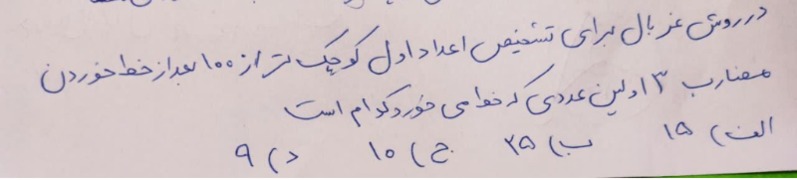 در روش غربال برای تشخیص اعداد اول کوچک تر از ۱۰۰ بعد از خط خوردن
مضارب ۳ اولین عددی که خط می خورد کدام است
الف) ۱۵ ب) ۲۵ ج) ۱۰ د) ۹